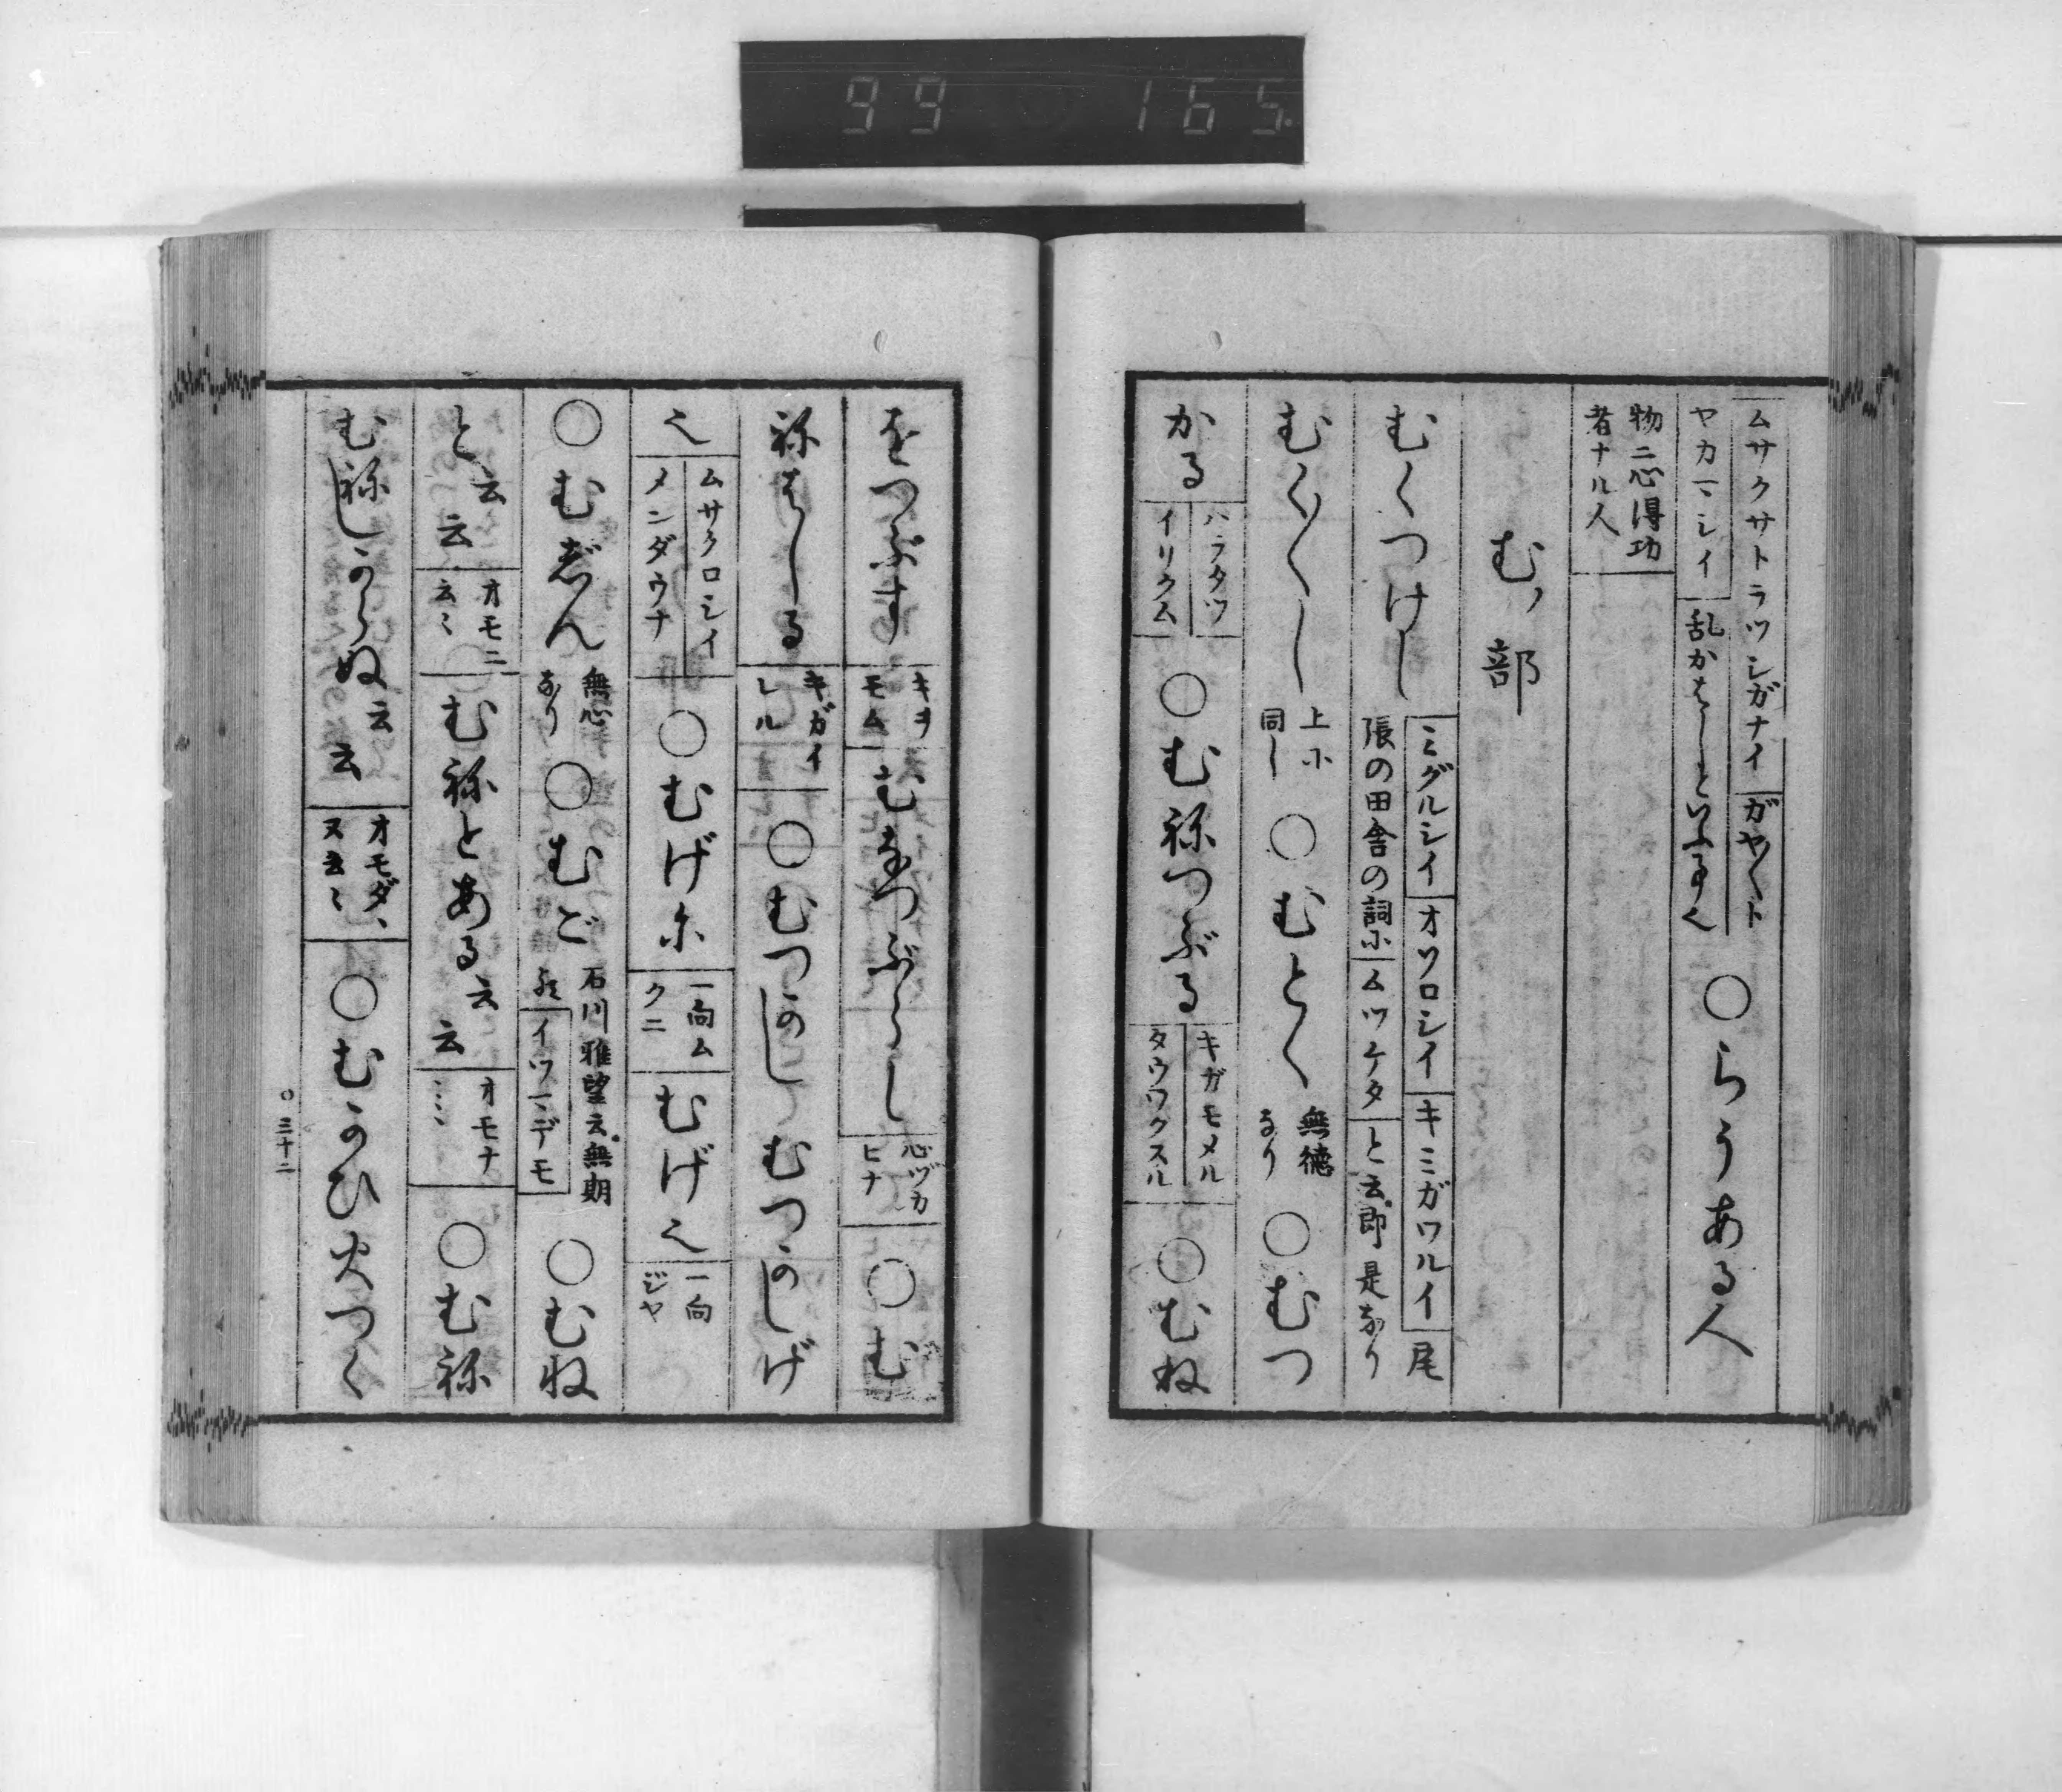 99 165
ムサクサトラツシガナイ ガヤ〱ト
ヤカマシイ 乱かはしといふ事也
○らうある人
物ニ心得功
者ナル人
むノ部
むくつけし
ミグルシイ オソロシイ キミガワルイ 尾
張の田舎の詞に ムツケタ と云即是なり
むく〱し
上に
同し
○むとく
無徳
なり
○むつ
かる
ハラタツ
イリクム
○むねつぶる
キガモメル
タウワクスル
○むね
をつぶす
キヲ
モム
むなつぶらし
心ヅカ
ヒナ
○む
ねはしる
キガイ
レル
○むつかし むつかしげ
也
ムサクロシイ
メンダウナ
○むげに
一向ム
クニ
むげ也
一向
ジヤ
○むじん
無心
なり
○むご
石川雅望云無期
イツマデモ
○むね
と云云
オモニ
云〻
むねとある云云
オモナ
○むね
むねしからぬ云云
オモダヽ
ヌ云〻
○むかひ火つく
○三十二